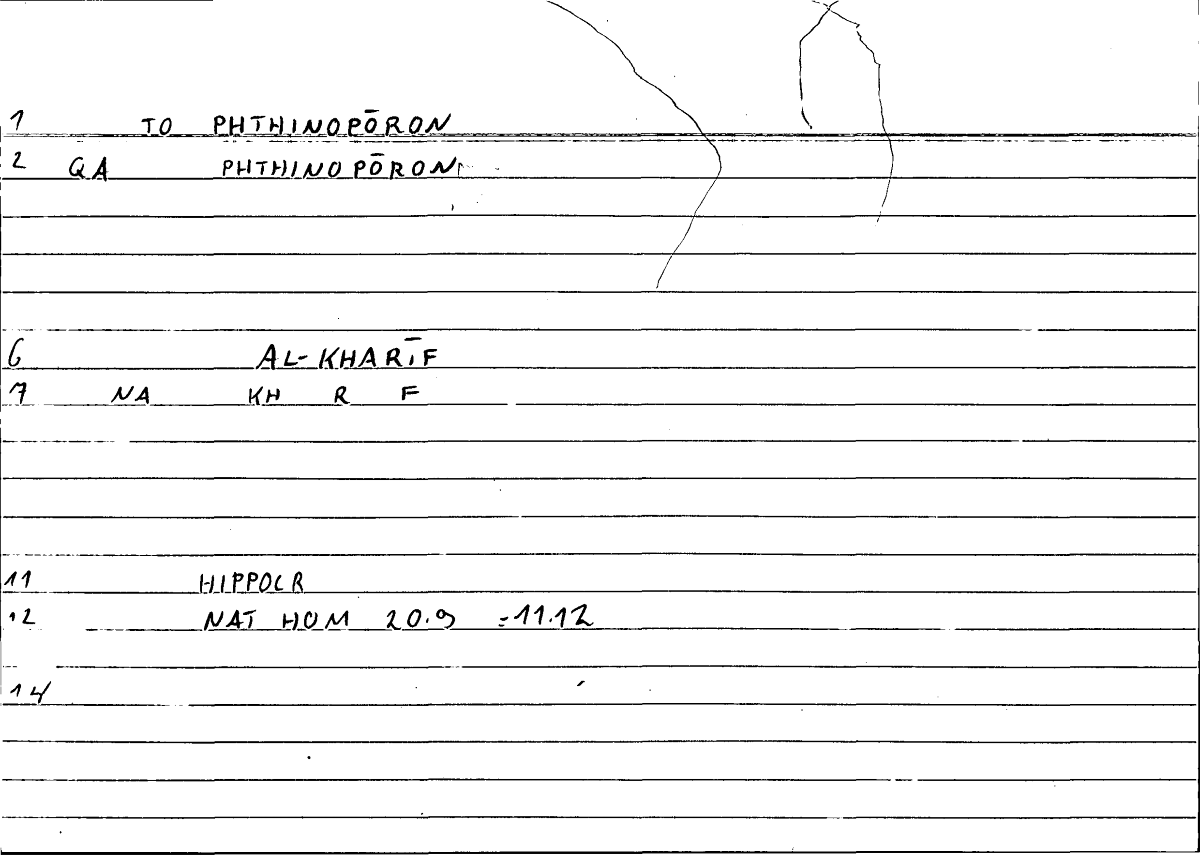 1 TO PHTHINOPŌRON
2 QA PHTHINOPŌRON
6 AL-KHARĪF
7 NA KH R F
11 HIPPOCR
12 NAT HOM 20.9 =11.12
14